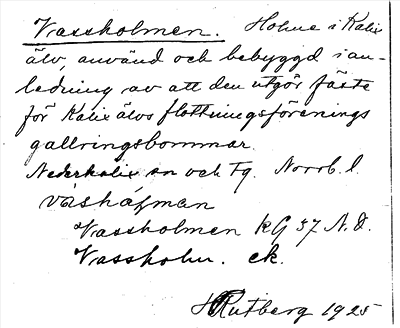 Vassholmen. Holme i Kalix
älv, använd och bebyggd i an-
ledning av att den utgör fäste
för Kalix älvs flottningsförenings
gallringsbommar.
Nederkalix sn och Tg. Norrb. l.
Vassholmen kG 37 N.D.
Vassholm. ek.
H Rutberg 1925